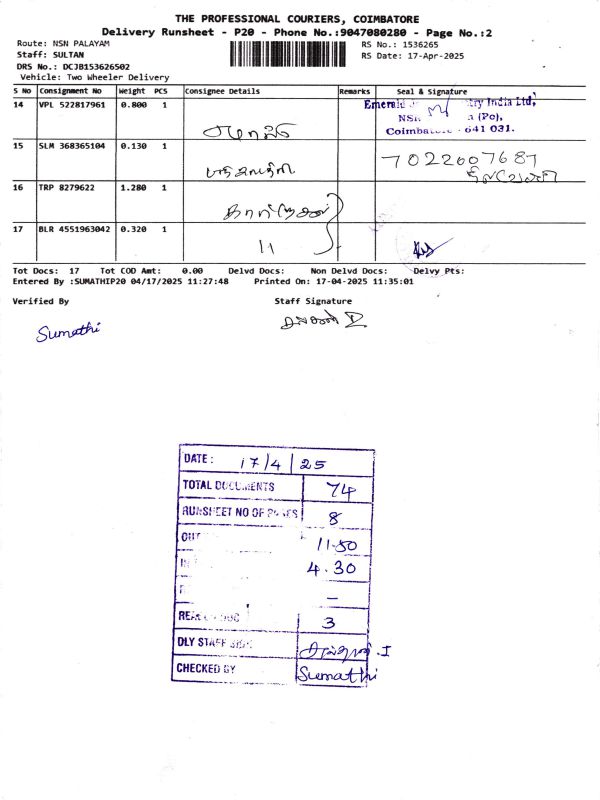 THE PROFESSIONAL COURIERS, COIMBATORE
Delivery Runsheet - P20 - Phone No.:9047080280 - Page No.:2
Route: NSN PALAYAM
RS No.: 1536265
Staff: SULTAN
RS Date: 17-Apr-2025
DRS No.: DCJB153626502
Vehicle: Two Wheeler Delivery
S No Consignment No Weight PCS Consignee Details Remarks Seal & Signature
14 VPL 522817961 0.800 1
Emerald Jewel Industry India Ltd,
NSN (Po),
Coimbatore - 641 031.
15 SLM 368365104 0.130 1 7022607687
16 TRP 8279622 1.280 1
17 BLR 4551963042 0.320 1 11
Tot Docs: 17 Tot COD Amt: 0.00 Delvd Docs: Non Delvd Docs: Delvy Pts:
Entered By :SUMATHIP20 04/17/2025 11:27:48 Printed On: 17-04-2025 11:35:01
Verified By Staff Signature
Sumathi
DATE: 17/4/25
TOTAL DOCUMENTS 74
RUNSHEET NO OF PAGES 8
OUT 11.50
IN 4.30
–
3
DLY STAFF SIGN
CHECKED BY Sumathi